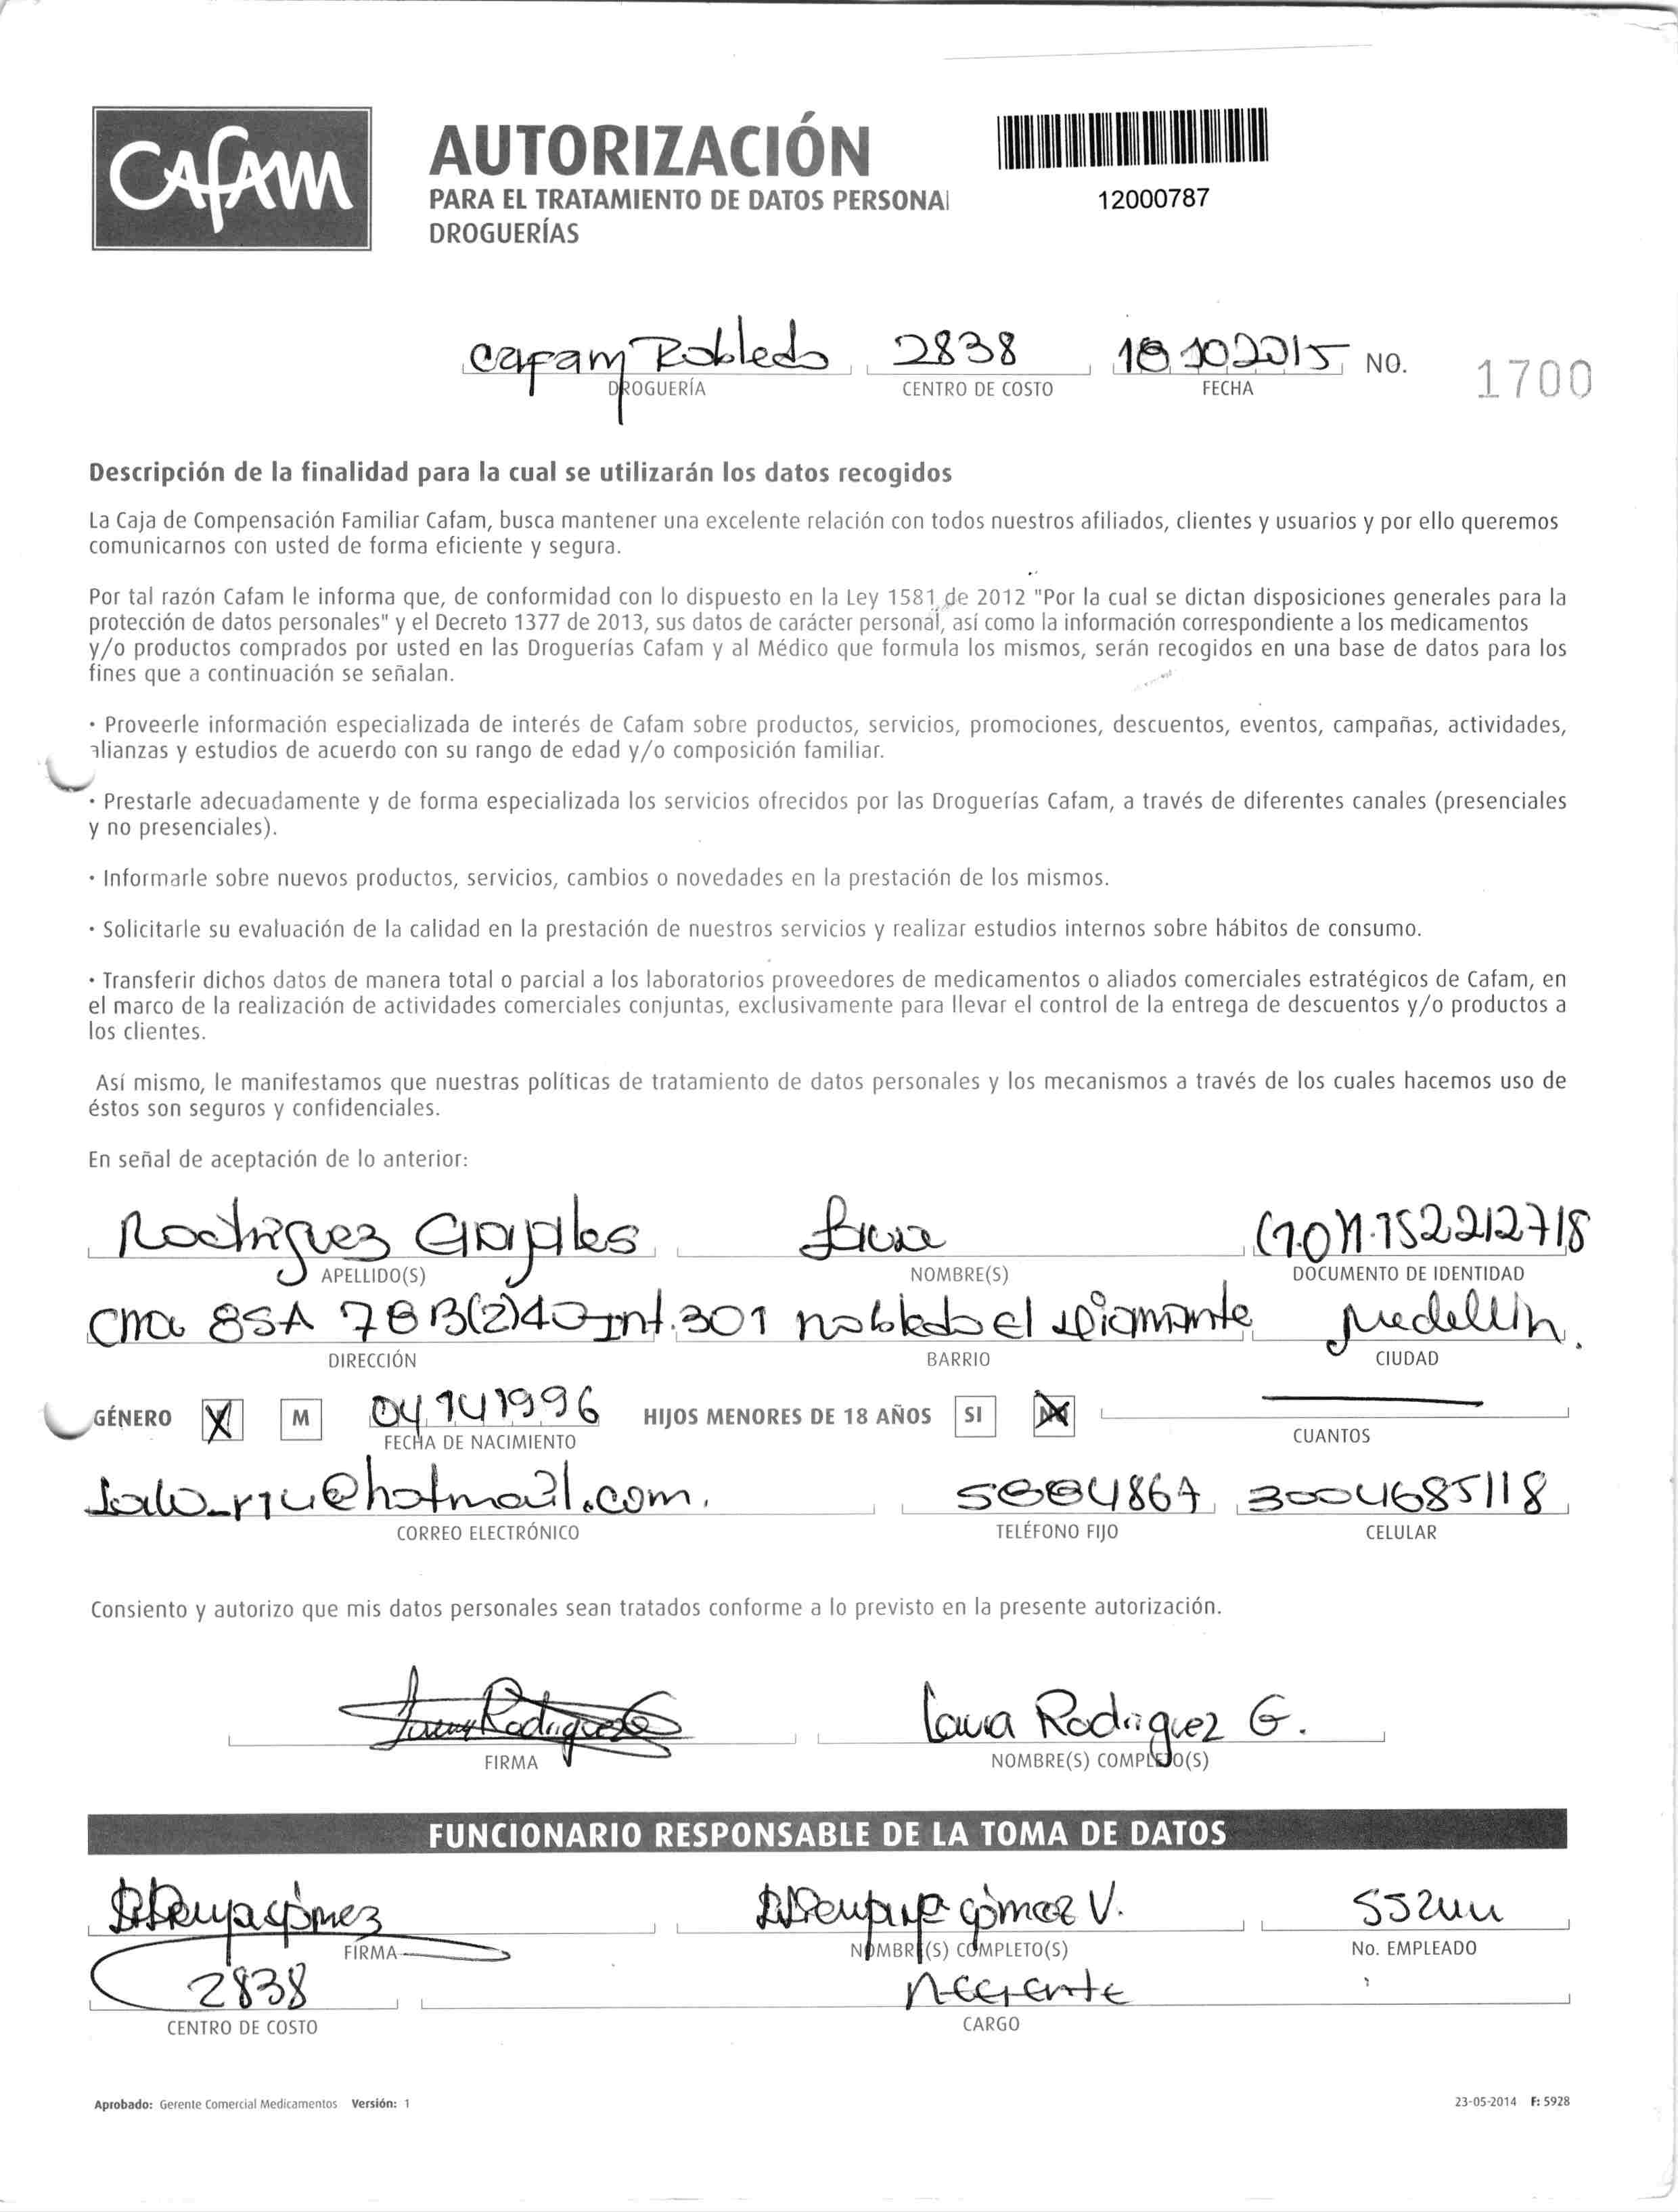 CAFAM
AUTORIZACIÓN
PARA EL TRATAMIENTO DE DATOS PERSONA
DROGUERÍAS
12000787
Cafam Robledo 2838 18 10 2015 NO. 1700
DROGUERÍA CENTRO DE COSTO FECHA
Descripción de la finalidad para la cual se utilizarán los datos recogidos
La Caja de Compensación Familiar Cafam, busca mantener una excelente relación con todos nuestros afiliados, clientes y usuarios y por ello queremos
comunicarnos con usted de forma eficiente y segura.
Por tal razón Cafam le informa que, de conformidad con lo dispuesto en la Ley 1581 de 2012 "Por la cual se dictan disposiciones generales para la
protección de datos personales" y el Decreto 1377 de 2013, sus datos de carácter personal, así como la información correspondiente a los medicamentos
y/o productos comprados por usted en las Droguerías Cafam y al Médico que formula los mismos, serán recogidos en una base de datos para los
fines que a continuación se señalan.
· Proveerle información especializada de interés de Cafam sobre productos, servicios, promociones, descuentos, eventos, campañas, actividades,
alianzas y estudios de acuerdo con su rango de edad y/o composición familiar.
· Prestarle adecuadamente y de forma especializada los servicios ofrecidos por las Droguerías Cafam, a través de diferentes canales (presenciales
y no presenciales).
· Informarle sobre nuevos productos, servicios, cambios o novedades en la prestación de los mismos.
· Solicitarle su evaluación de la calidad en la prestación de nuestros servicios y realizar estudios internos sobre hábitos de consumo.
· Transferir dichos datos de manera total o parcial a los laboratorios proveedores de medicamentos o aliados comerciales estratégicos de Cafam, en
el marco de la realización de actividades comerciales conjuntas, exclusivamente para llevar el control de la entrega de descuentos y/o productos a
los clientes.
Así mismo, le manifestamos que nuestras políticas de tratamiento de datos personales y los mecanismos a través de los cuales hacemos uso de
éstos son seguros y confidenciales.
En señal de aceptación de lo anterior:
Rodriguez Laura
APELLIDO(S) NOMBRE(S) DOCUMENTO DE IDENTIDAD
Cra 85A 78B(2)40 Int.301 Robledo el Diamante Medellin.
DIRECCIÓN BARRIO CIUDAD
GÉNERO X M 04 14 1996 HIJOS MENORES DE 18 AÑOS SI X
FECHA DE NACIMIENTO CUANTOS
@hotmail.com. 3004685118
CORREO ELECTRÓNICO TELÉFONO FIJO CELULAR
Consiento y autorizo que mis datos personales sean tratados conforme a lo previsto en la presente autorización.
Laura Rodriguez G Laura Rodriguez G.
FIRMA NOMBRE(S) COMPLETO(S)
FUNCIONARIO RESPONSABLE DE LA TOMA DE DATOS
Gómez Gómez V.
FIRMA NOMBRE(S) COMPLETO(S) No. EMPLEADO
2838
CENTRO DE COSTO CARGO
Aprobado: Gerente Comercial Medicamentos Versión: 1 23-05-2014 F: 5928